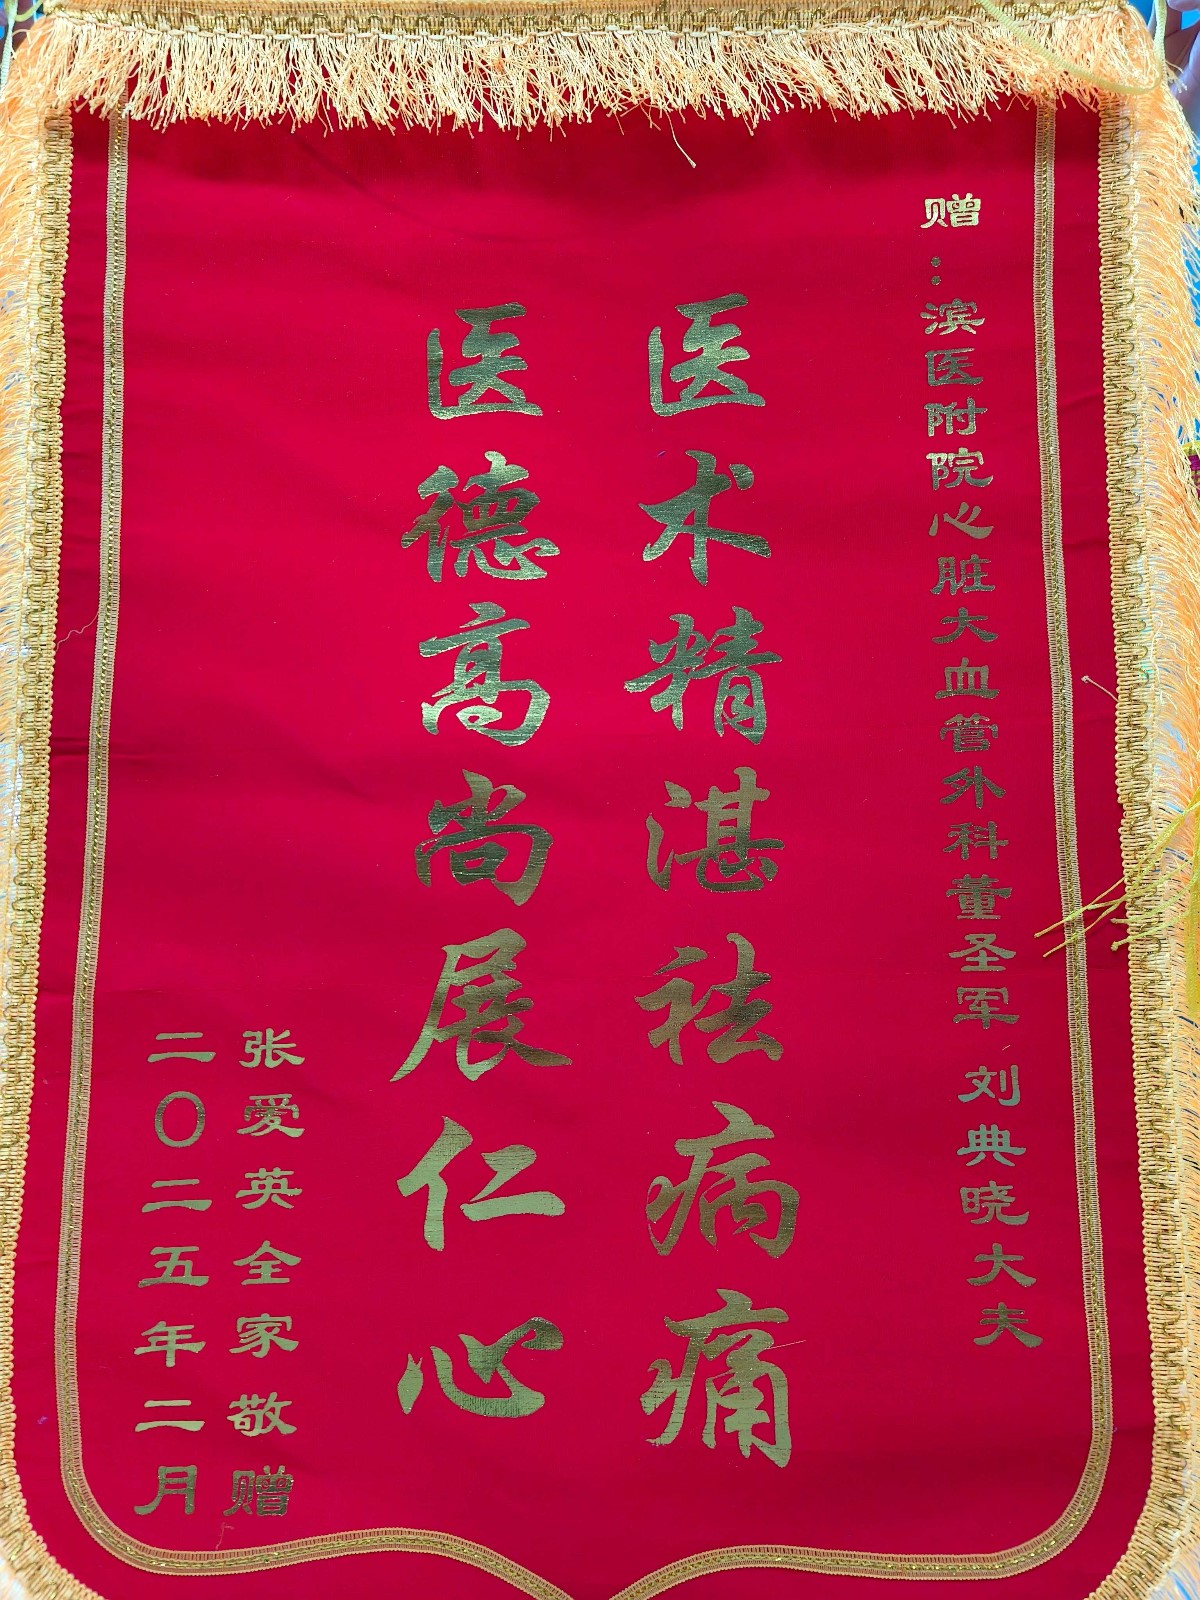 赠：滨医附院心脏大血管外科董圣军 刘典晓大夫
医术精湛祛病痛
医德高尚展仁心
张爱英全家敬赠
二〇二五年二月